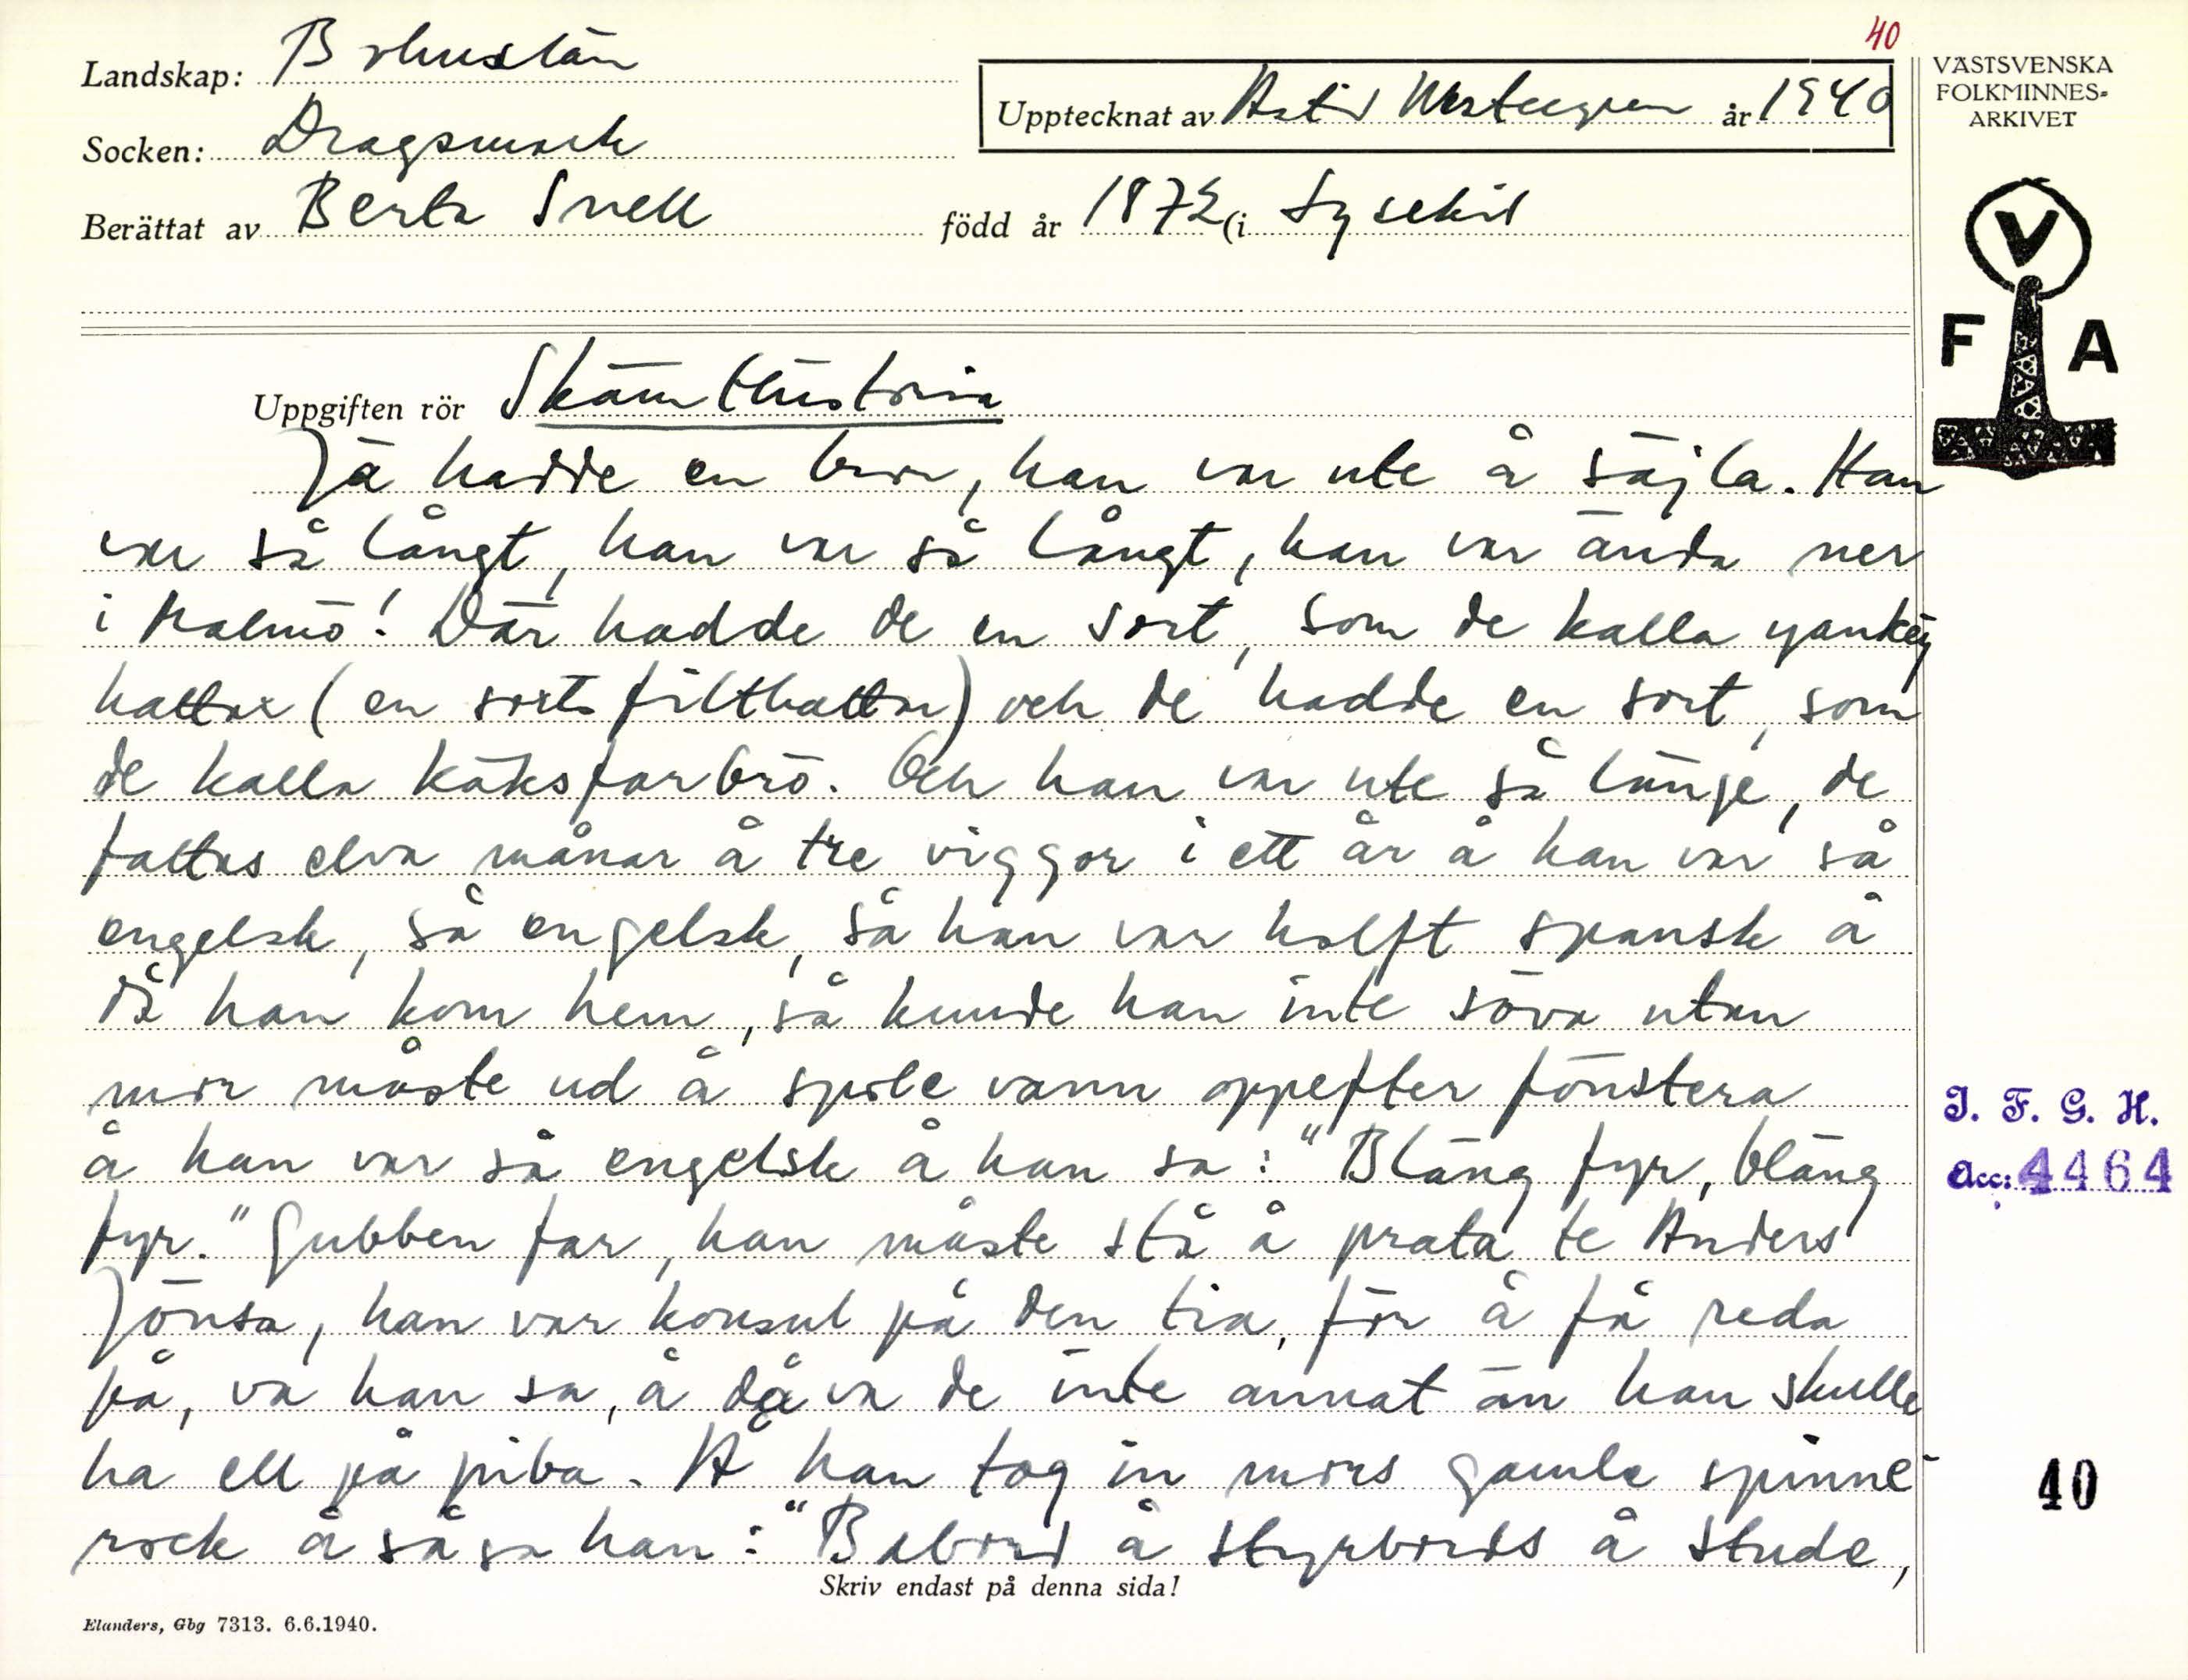 40
Landskap: Bohuslän
Upptecknat av Astrid Westergren år 1940
Socken: Dragsmark
Berättat av Berta Snell född år 1872 (i Lysekil
VÄSTSVENSKA
FOLKMINNES-
ARKIVET
V
F A
Uppgiften rör Skämthistoria
Jä hadde en bror, han var ute å säjla. Han
var så långt, han var så långt, han var ända ner
i Malmö! Där hadde de en sort, som de kalla yankey
hattar (en sorts filthattar) och de hadde en sort, som
de kalla käksfarbrö. Och han var ute så länge, de
fattas elva månar å tre viggor i ett år å han var så
engelsk, så engelsk, så han var halft spansk å
då han kom hem, så kunde han inte söva utan
mor måste ud å spole vann oppefter fönstera
å han var så engelsk å han sa: "Bläng fyr, bläng
fyr." Gubben far, han måste stå å prata te Anders
Jönsa, han var konsul på den tia, för å få reda
på, va han sa, å då va de inte annat än han skulle
ha ell på piba. Å han tog in mors gamle spinne-
rock å så sa han: "Babord å styrbords å stude,
Skriv endast på denna sida!
Elanders, Gbg 7313. 6.6.1940.
I. F. G. H.
Acc: 4464
40